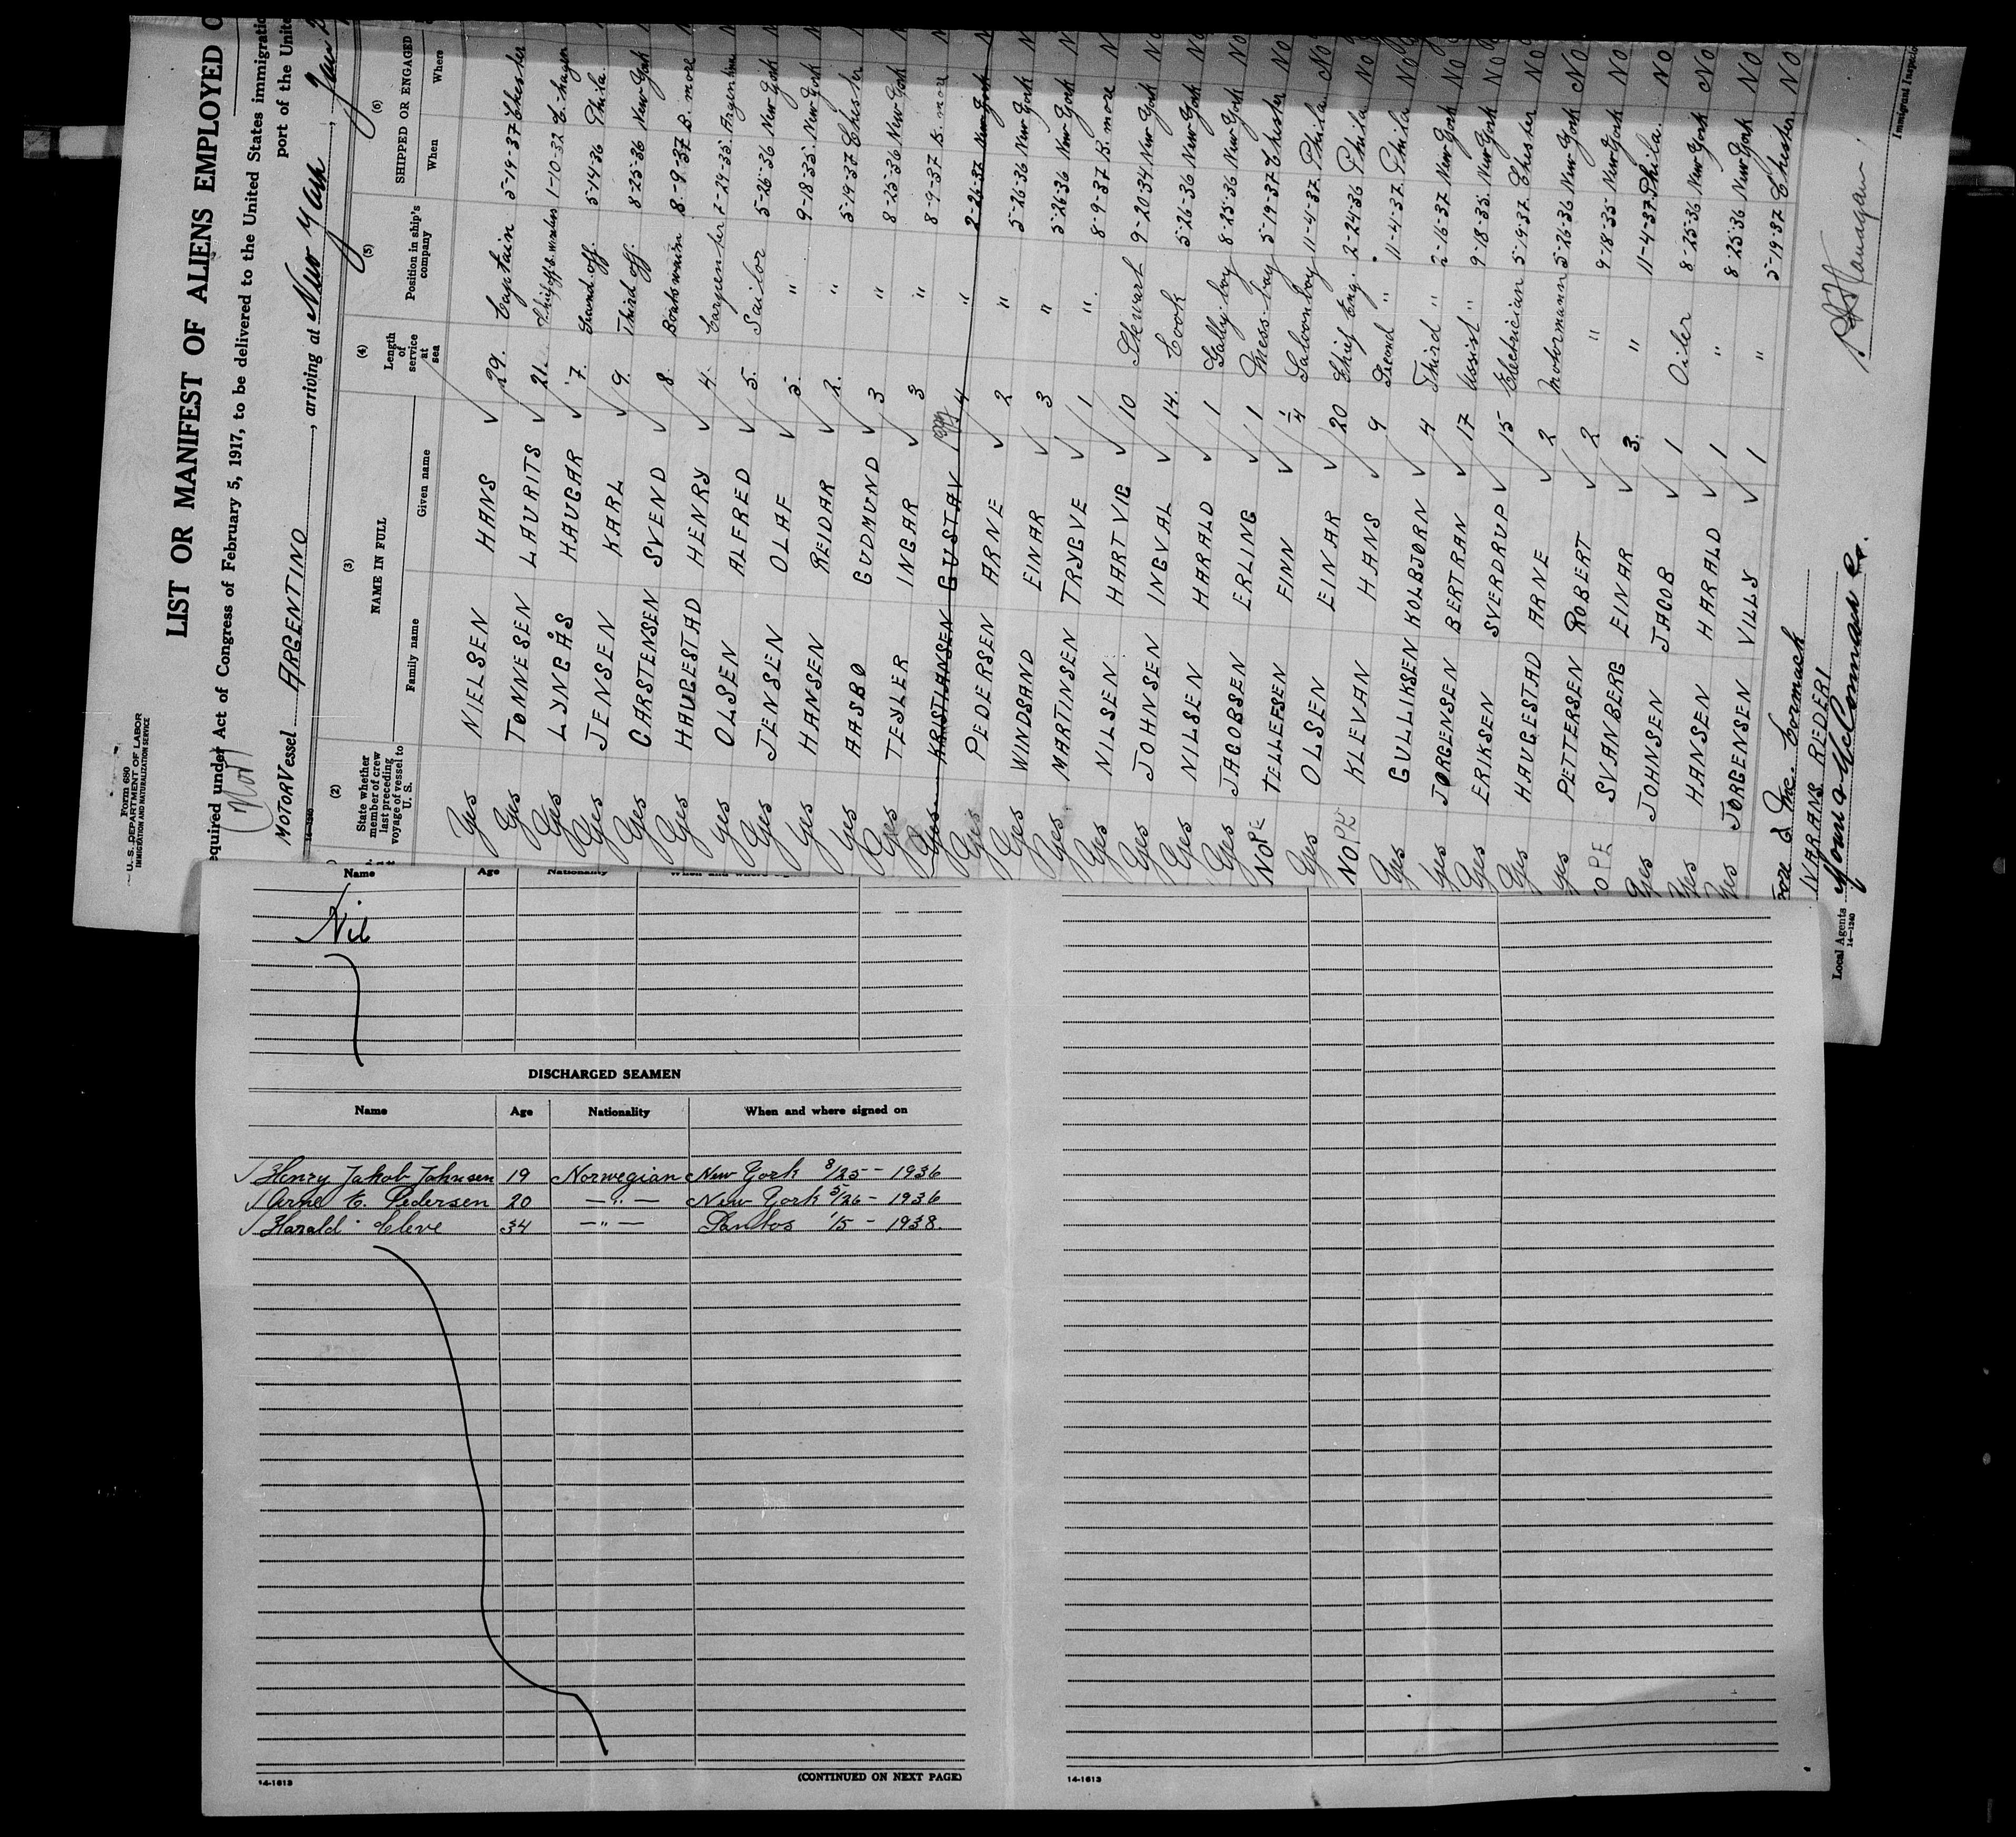 Form 680
U. S. DEPARTMENT OF LABOR
IMMIGRATION AND NATURALIZATION SERVICE
LIST OR MANIFEST OF ALIENS EMPLOYED O
equired under Act of Congress of February 5, 1917, to be delivered to the United States immigratio
port of the Unite
(Nor)
MOTOR Vessel ARGENTINO, arriving at New York, Jan
(2) (3) (4) (5) (6)
State whether member of crew last preceding voyage of vessel to U. S. NAME IN FULL Length of service at sea Position in ship's company SHIPPED OR ENGAGED
Family name Given name When Where
Yes NIELSEN HANS 29. Captain 5-19-37 Chester
Yes TONNESEN LAURITS 21. 1-10-32 C-hagen
Yes LYNGÅS HAUGAR 7. Second off. 5-14-36 Phila.
Yes JENSEN KARL 9. Third off. 8-25-36 New York
Yes CARSTENSEN SVEND 8 Boatswain 8-9-37 B. more
Yes HAUGESTAD HENRY 4. Carpenter 7-29-35. Argentina
Yes OLSEN ALFRED 5. Sailor 5-26-36 New York
Yes JENSEN OLAF 5. " 9-18-35. New York
Yes HANSEN REIDAR 2. " 5-19-37 Chester
Yes AASBO GUDMUND 3 " 8-25-36 New York
Yes TEYLER INGAR 3 " 8-9-37 B. more
Yes KRISTIANSEN GUSTAV 4 " 2-26-37 New York
Yes PEDERSEN ARNE 2 " 5-26-36 New York
Yes WINDSAND EINAR 3 " 5-26-36 New York
Yes MARTINSEN TRYGVE 1 " 8-9-37 B. more
Yes NILSEN HARTVIG 10 Stewart 9-20-34 New York NO
Yes JOHNSEN INGVAL 14. Cook 5-26-36 New York NO
Yes NILSEN HARALD 1 Gally-boy 8-25-36 New York NO
Yes JACOBSEN ERLING 1 Mess-boy 5-19-37 Chester NO
NOPE TELLEFSEN FINN 1/4 Saloonboy 11-4-37. Phila. NO
Yes OLSEN EINAR 20 Chief Eng. 2-24-36 Phila NO
NOPE KLEVAN HANS 9 Second " 11-4-37. Phila NO
Yes GULLIKSEN KOLBJORN 4 Third " 2-16-37 New York NO
Yes JORGENSEN BERTRAN 17 Assist " 9-18-35. New York NO
Yes ERIKSEN SVERDRUP 15 Electrician 5-19-37. Chester NO
Yes HAUGESTAD ARNE 2 Motormann 5-26-36 New York NO
Yes PETTERSEN ROBERT 2 " 9-18-35 New York NO
OPE SVANBERG EINAR 3. " 11-4-37. Phila. NO
Yes JOHNSEN JACOB 1 Oiler 8-25-36 New York NO
Yes HANSEN HARALD 1 " 8-25-36 New York NO
Yes JORGENSEN VILLY 1 " 5-19-37 Chester. NO
IVARANS REDERI
Local Agents
14-1240
Immigrant Inspector
Name Age Nationality When and where
Nil
DISCHARGED SEAMEN
Name Age Nationality When and where signed on
Henry Jakob Johnsen 19 Norwegian New York 8/25 - 1936
Arne E. Pedersen 20 —"— New York 5/26 - 1936
Harald Cleve 34 —"— Santos 1/5 - 1938.
14-1613
(CONTINUED ON NEXT PAGE)
14-1613